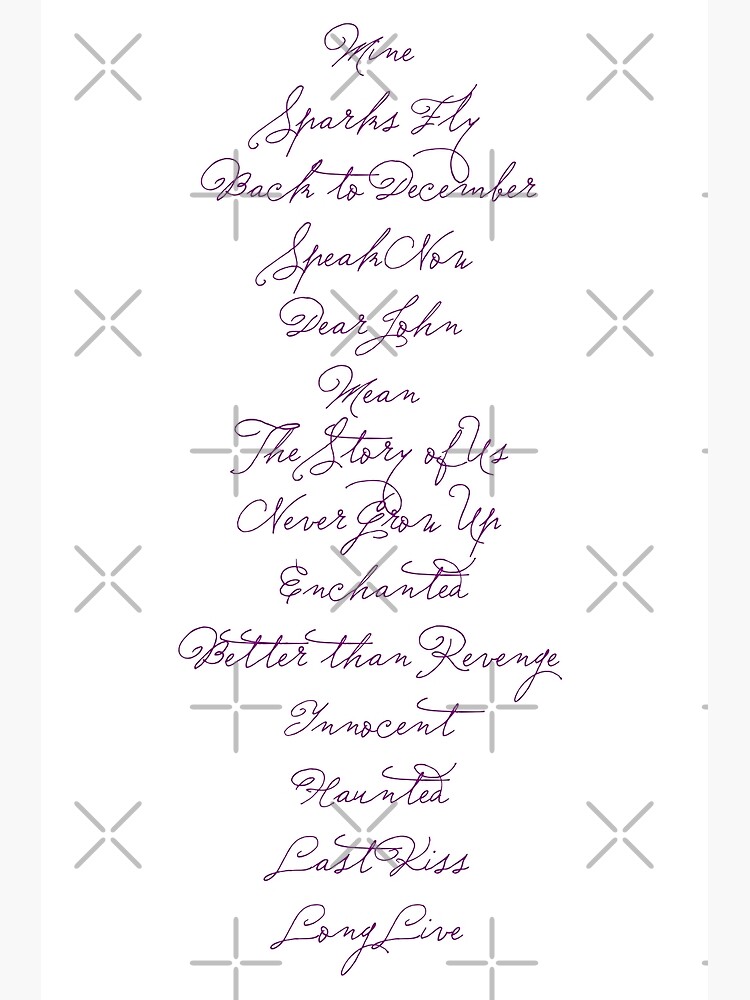 Mine
Sparks Fly
Back to December
Speak Now
Dear John
Mean
The Story of Us
Never Grow Up
Enchanted
Better than Revenge
Innocent
Haunted
Last Kiss
Long Live